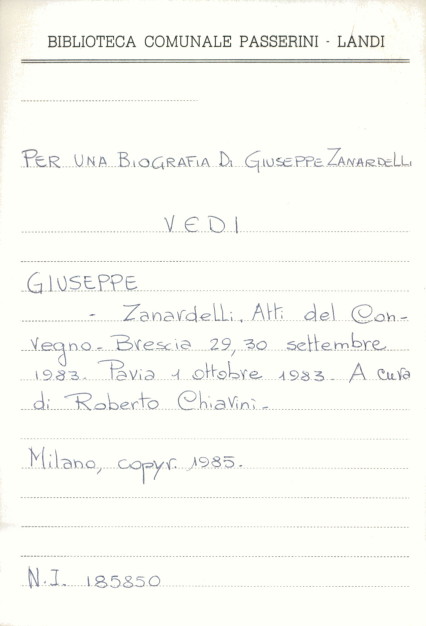 BIBLIOTECA COMUNALE PASSERINI - LANDI
PER UNA BIOGRAFIA DI GIUSEPPE ZANARDELLI
VEDI
GIUSEPPE
- Zanardelli. Atti del Con-
vegno - Brescia 29, 30 settembre
1983. Pavia 1 ottobre 1983. A cura
di Roberto Chiavini -
Milano, copyr. 1985.
N.I. 185850